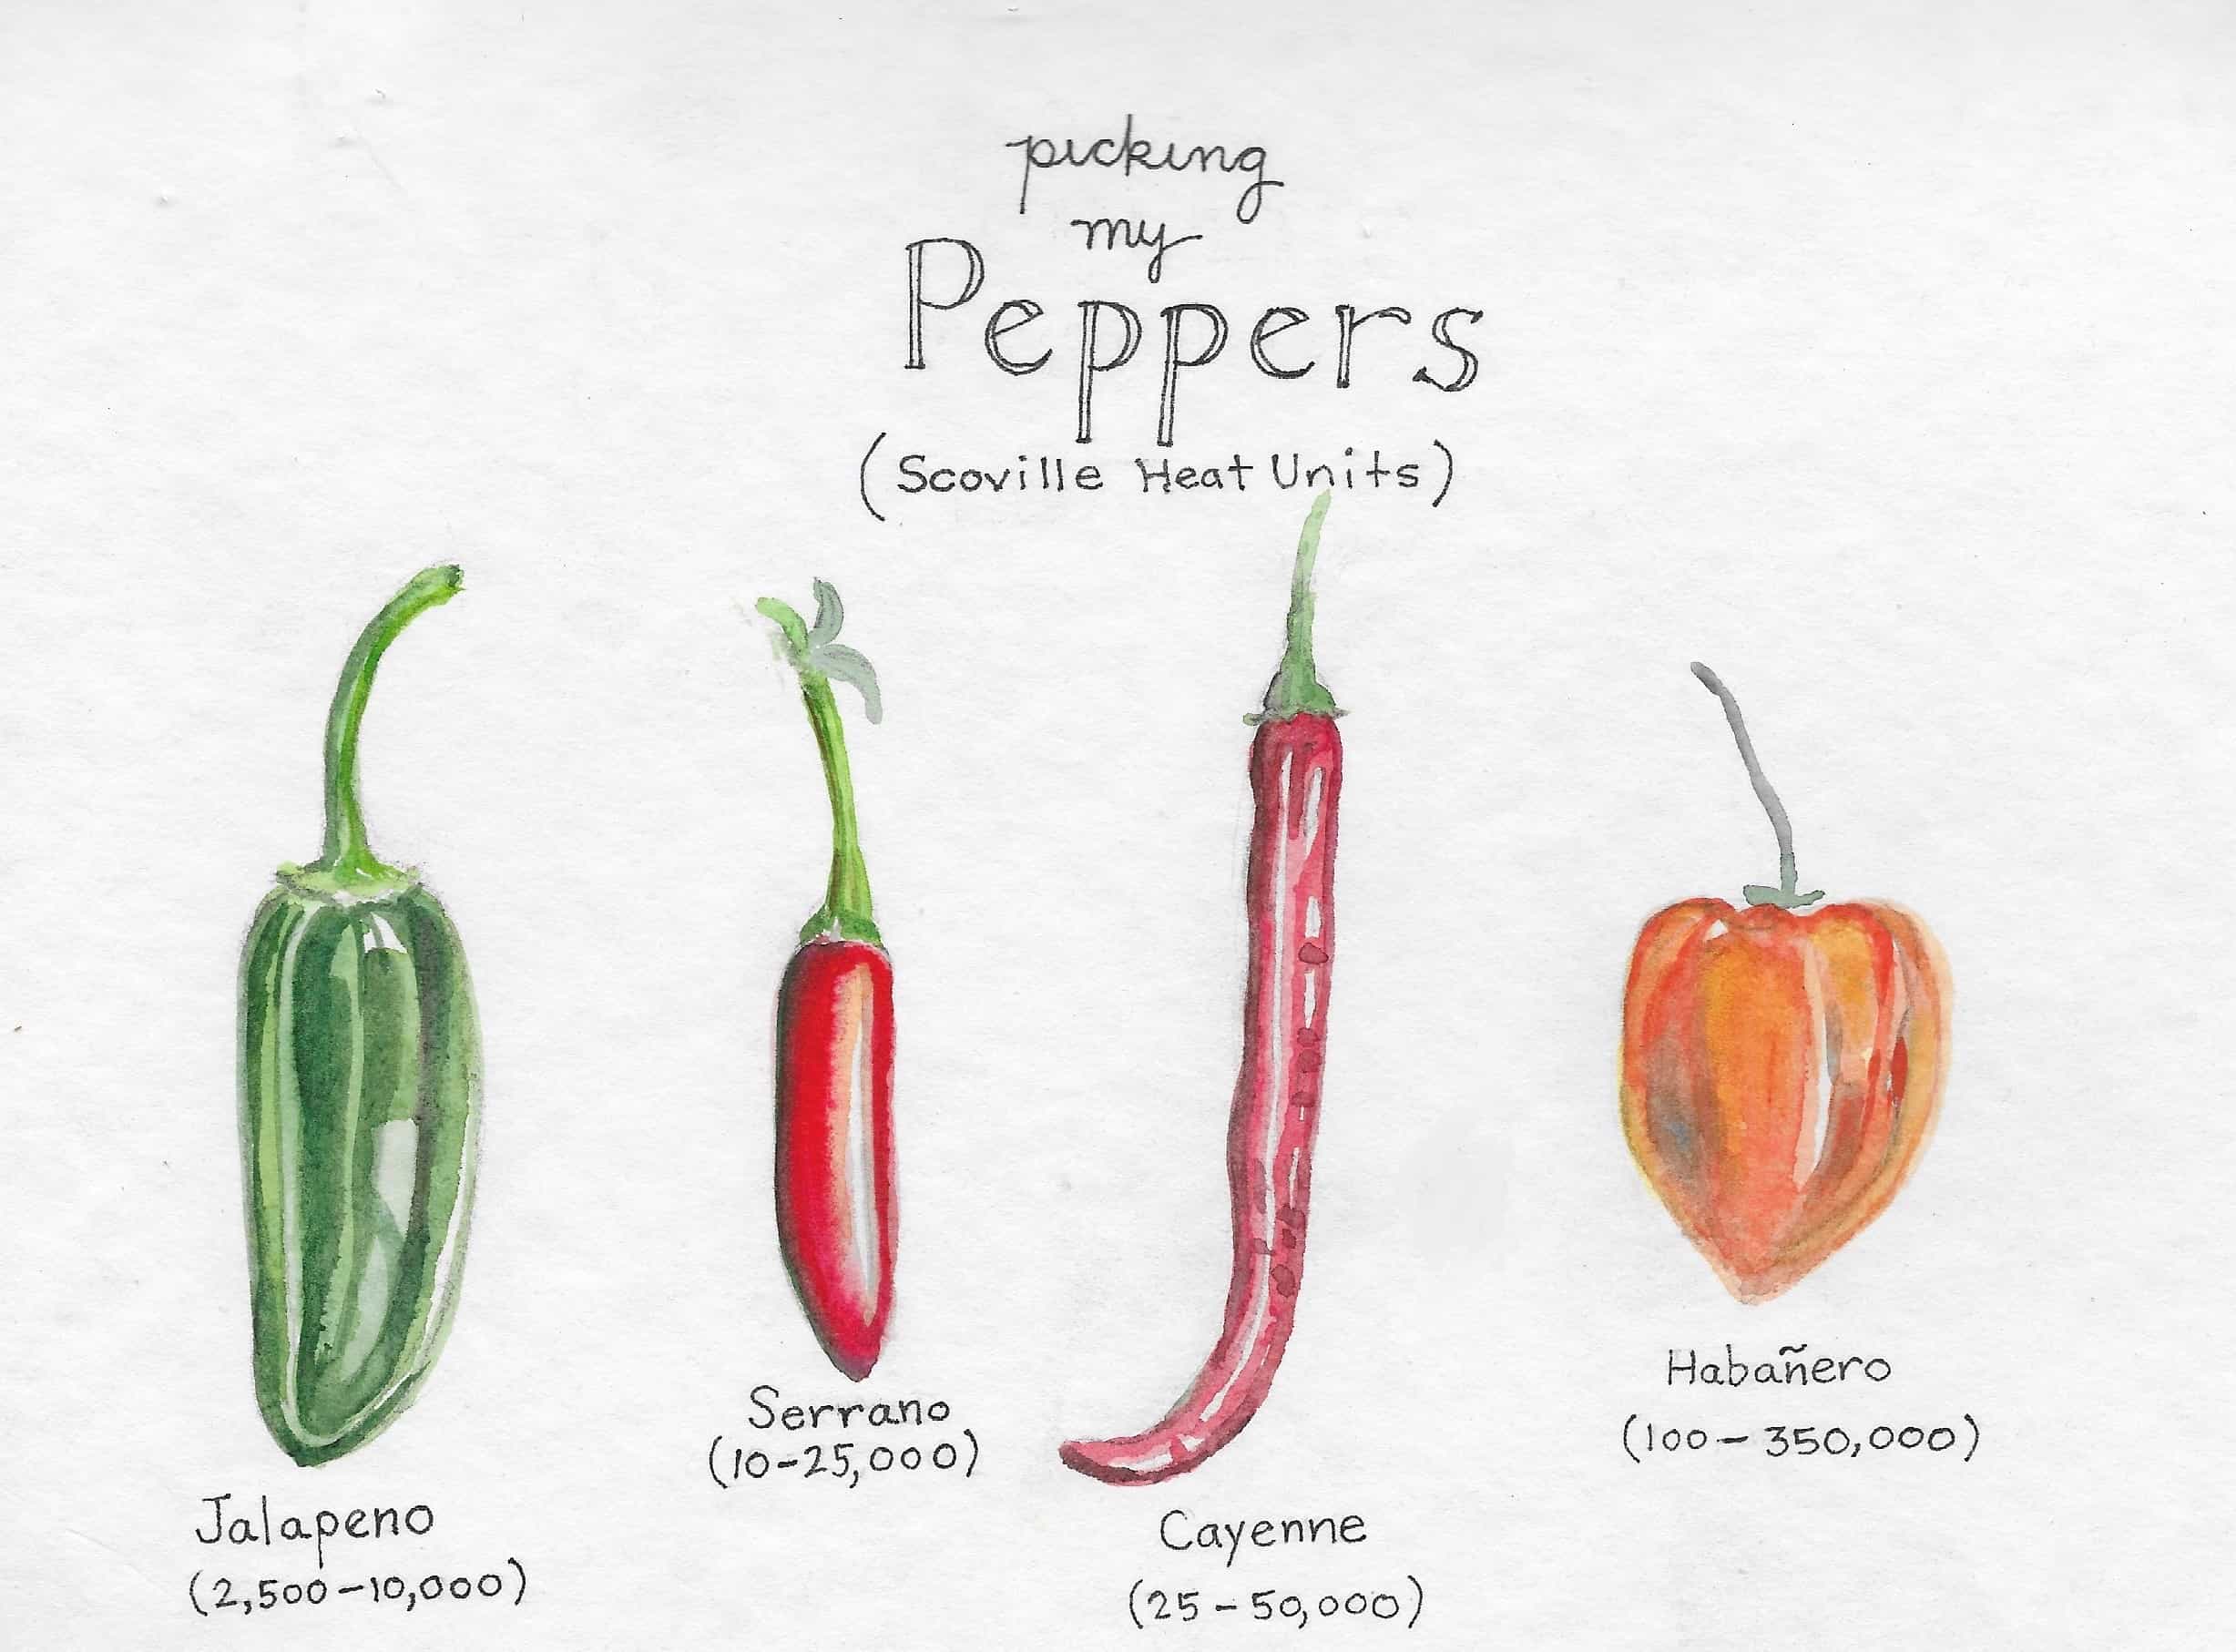 picking
my
Peppers
(Scoville Heat Units)
Jalapeno
(2,500-10,000)
Serrano
(10-25,000)
Cayenne
(25-50,000)
Habañero
(100-350,000)